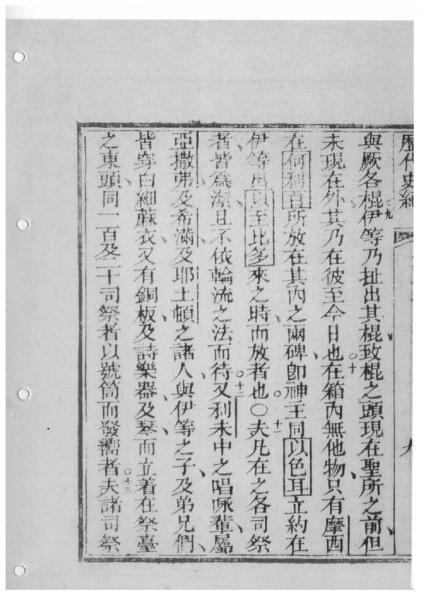 歷代史紀
與厥各棍伊等乃扯出其棍致棍之頭現在聖所之前但
○九
未現在外其乃在彼至今日也在箱內無他物只有摩西
○十
在何利百所放在其內之兩碑卽神主同以色耳立約在
伊等出以至比多來之時而放者也○夫凡在之各司祭
○十一
者皆為潔且不依輪流之法而待又利未中之唱咏輩屬
○十二
亞撒弗及希滿及耶土頓之諸人與伊等之子及弟兄們
皆穿白細蔴衣又有銅板及詩樂器及琴而立着在祭臺
之東頭同一百及二十司祭者以號筒而發嚮者夫諸司祭
○十三